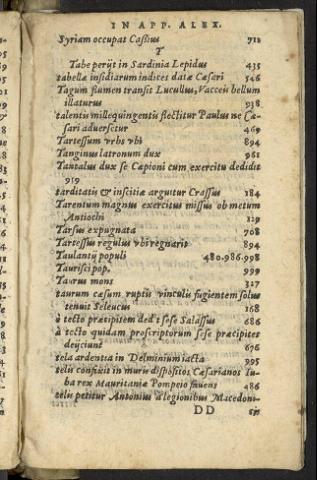 IN APP. ALEX.
Syriam occupat Caßius 712
T
Tabe perijt in Sardinia Lepidus 435
tabellæ insidiarum indices datæ Cæsari 546
Tagum flumen transit Lucullus, Vacceis bellum
illaturus 938
talentis millequingentis flectitur Paulus ne Cæ-
sari aduersetur 469
Tartessum vrbs vbi 894
Tanginus latronum dux 961
Tautalus dux se Cæpioni cum exercitu dedidit
959
tarditatis & inscitiæ arguitur Crassus 184
Tarentum magnus exercitus missus ob metum
Antiochi 119
Tarsus expugnata 708
Tartessus regulus vbi regnarit 894
Taulantij populi 480.986.998
Taurisci pop. 999
Taurus mons 327
taurum cæsum ruptis vinculis fugientem solus
tenuit Seleucus 168
à tecto præcipitem dedit sese Salassus 686
à tecto quidam proscriptorum sese præcipites
deijciunt 676
tela ardentia in Delminium iacta 995
telis confixit in muris dispositos Cæsarianos Iu-
ba rex Mauritaniæ Pompeio fauens 486
telis petitur Antonius à legionibus Macedoni-
DD